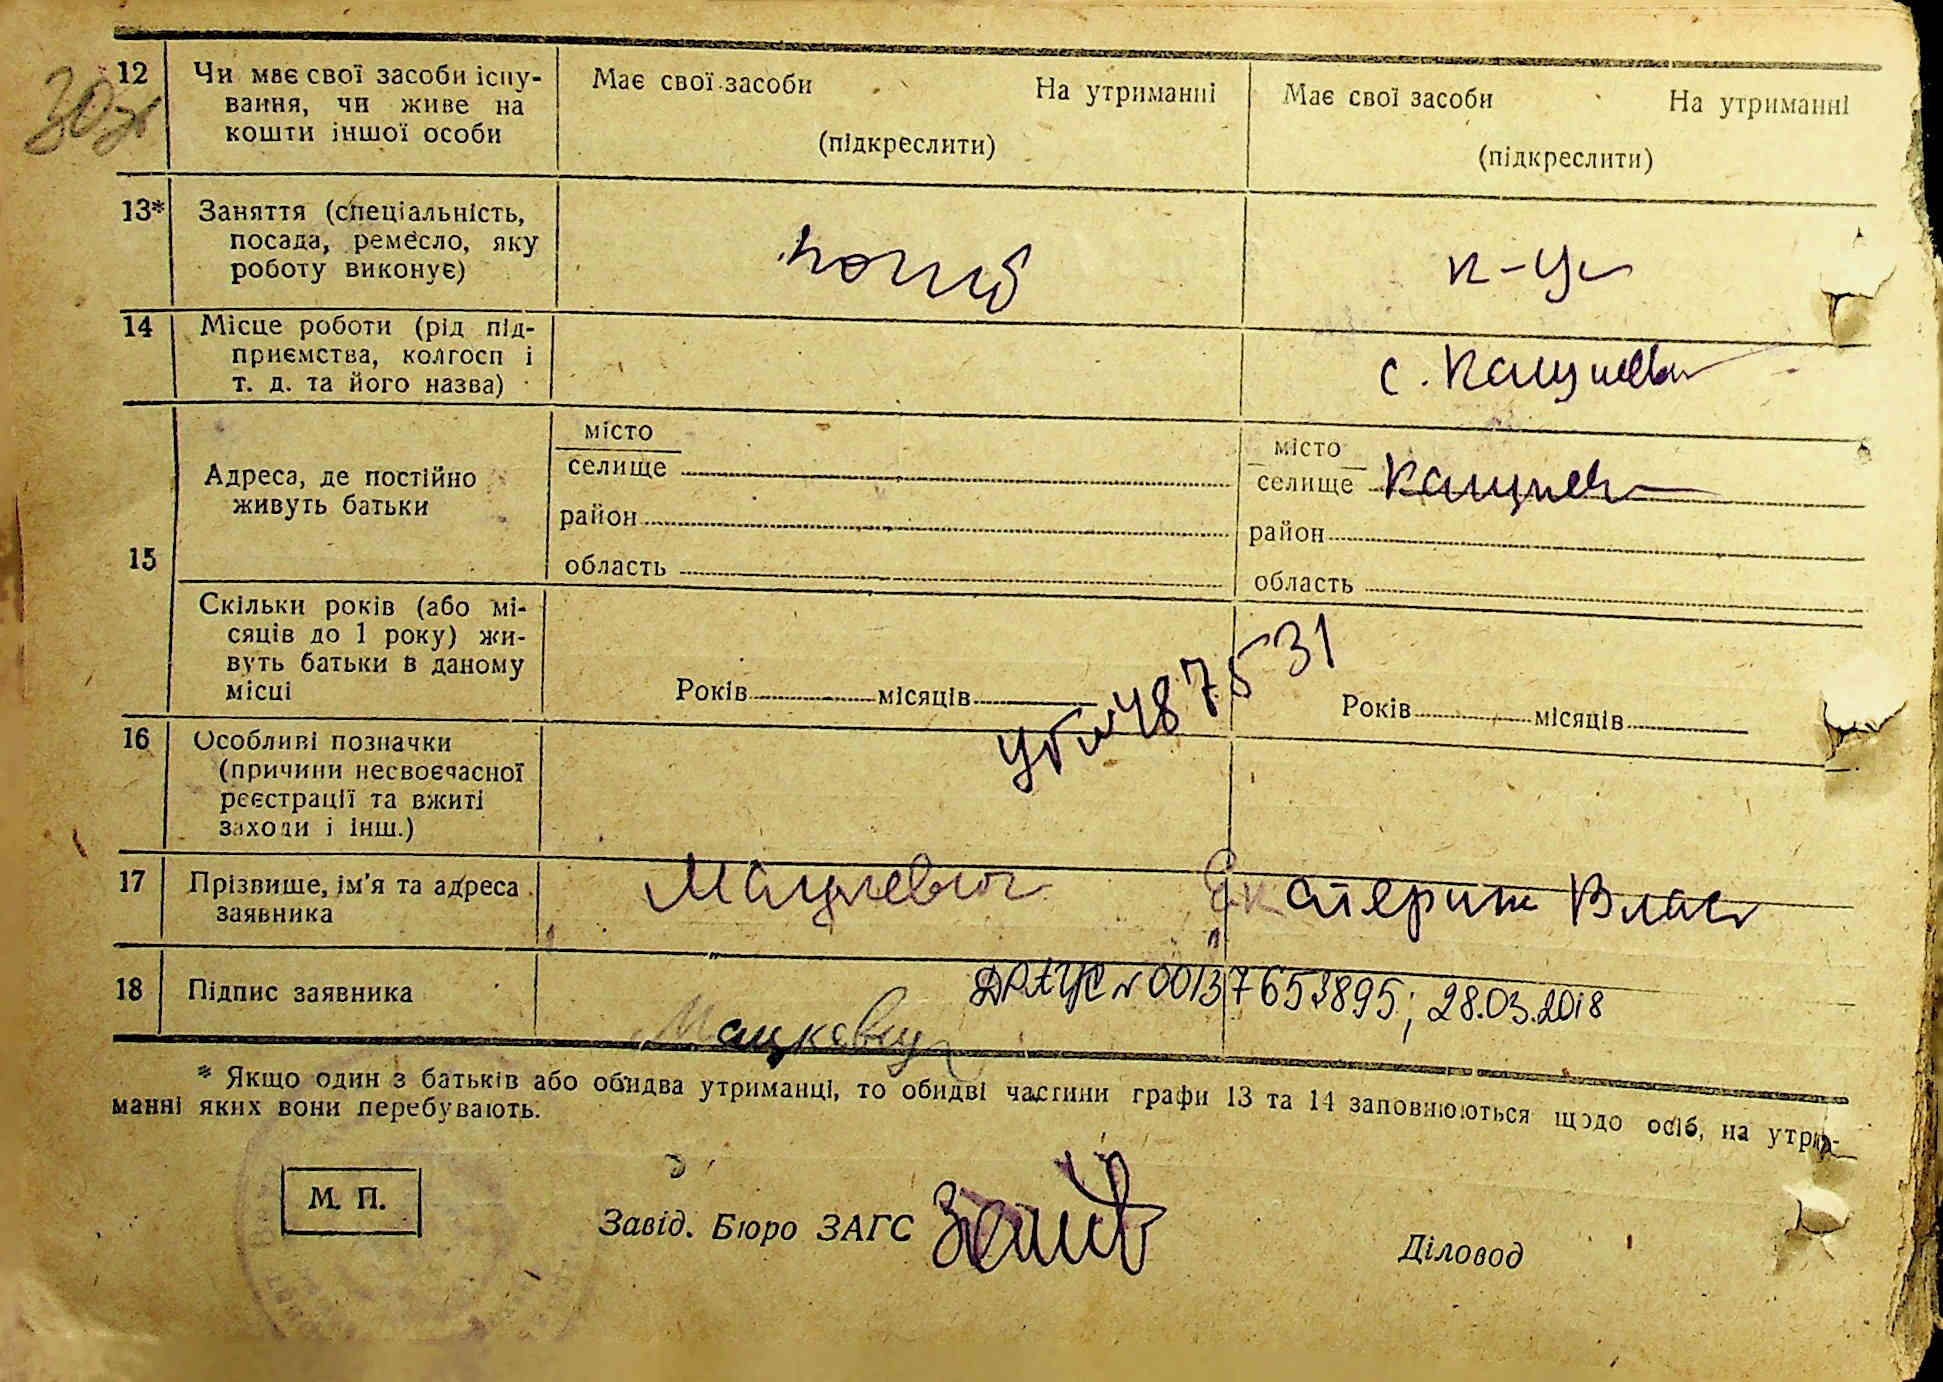 12 Чи має свої засоби існу-
вання, чи живе на
кошти іншої особи
Має свої засоби На утриманні
(підкреслити)
Має свої засоби На утриманні
(підкреслити)
13* Заняття (спеціальність,
посада, ремесло, яку
роботу виконує)
к-ця
14 Місце роботи (рід під-
приємства, колгосп і
т. д. та його назва)
с.
15
Адреса, де постійно
живуть батьки
місто
селище
район
область
місто
селище
район
область
Скільки років (або мі-
сяців до 1 року) жи-
вуть батьки в даному
місці
Років місяців
Років місяців
487531
16 Особливі позначки
(причини несвоєчасної
реєстрації та вжиті
заходи і інш.)
17 Прізвище, ім'я та адреса
заявника
Мацкевич Екатерина Влас
18 Підпис заявника
ДРАЦС № 00137653895; 28.03.2018
Мацкевич
* Якщо один з батьків або обидва утриманці, то обидві частини графи 13 та 14 заповнюються щодо осіб, на утри-
манні яких вони перебувають.
М. П.
Завід. Бюро ЗАГС
Діловод